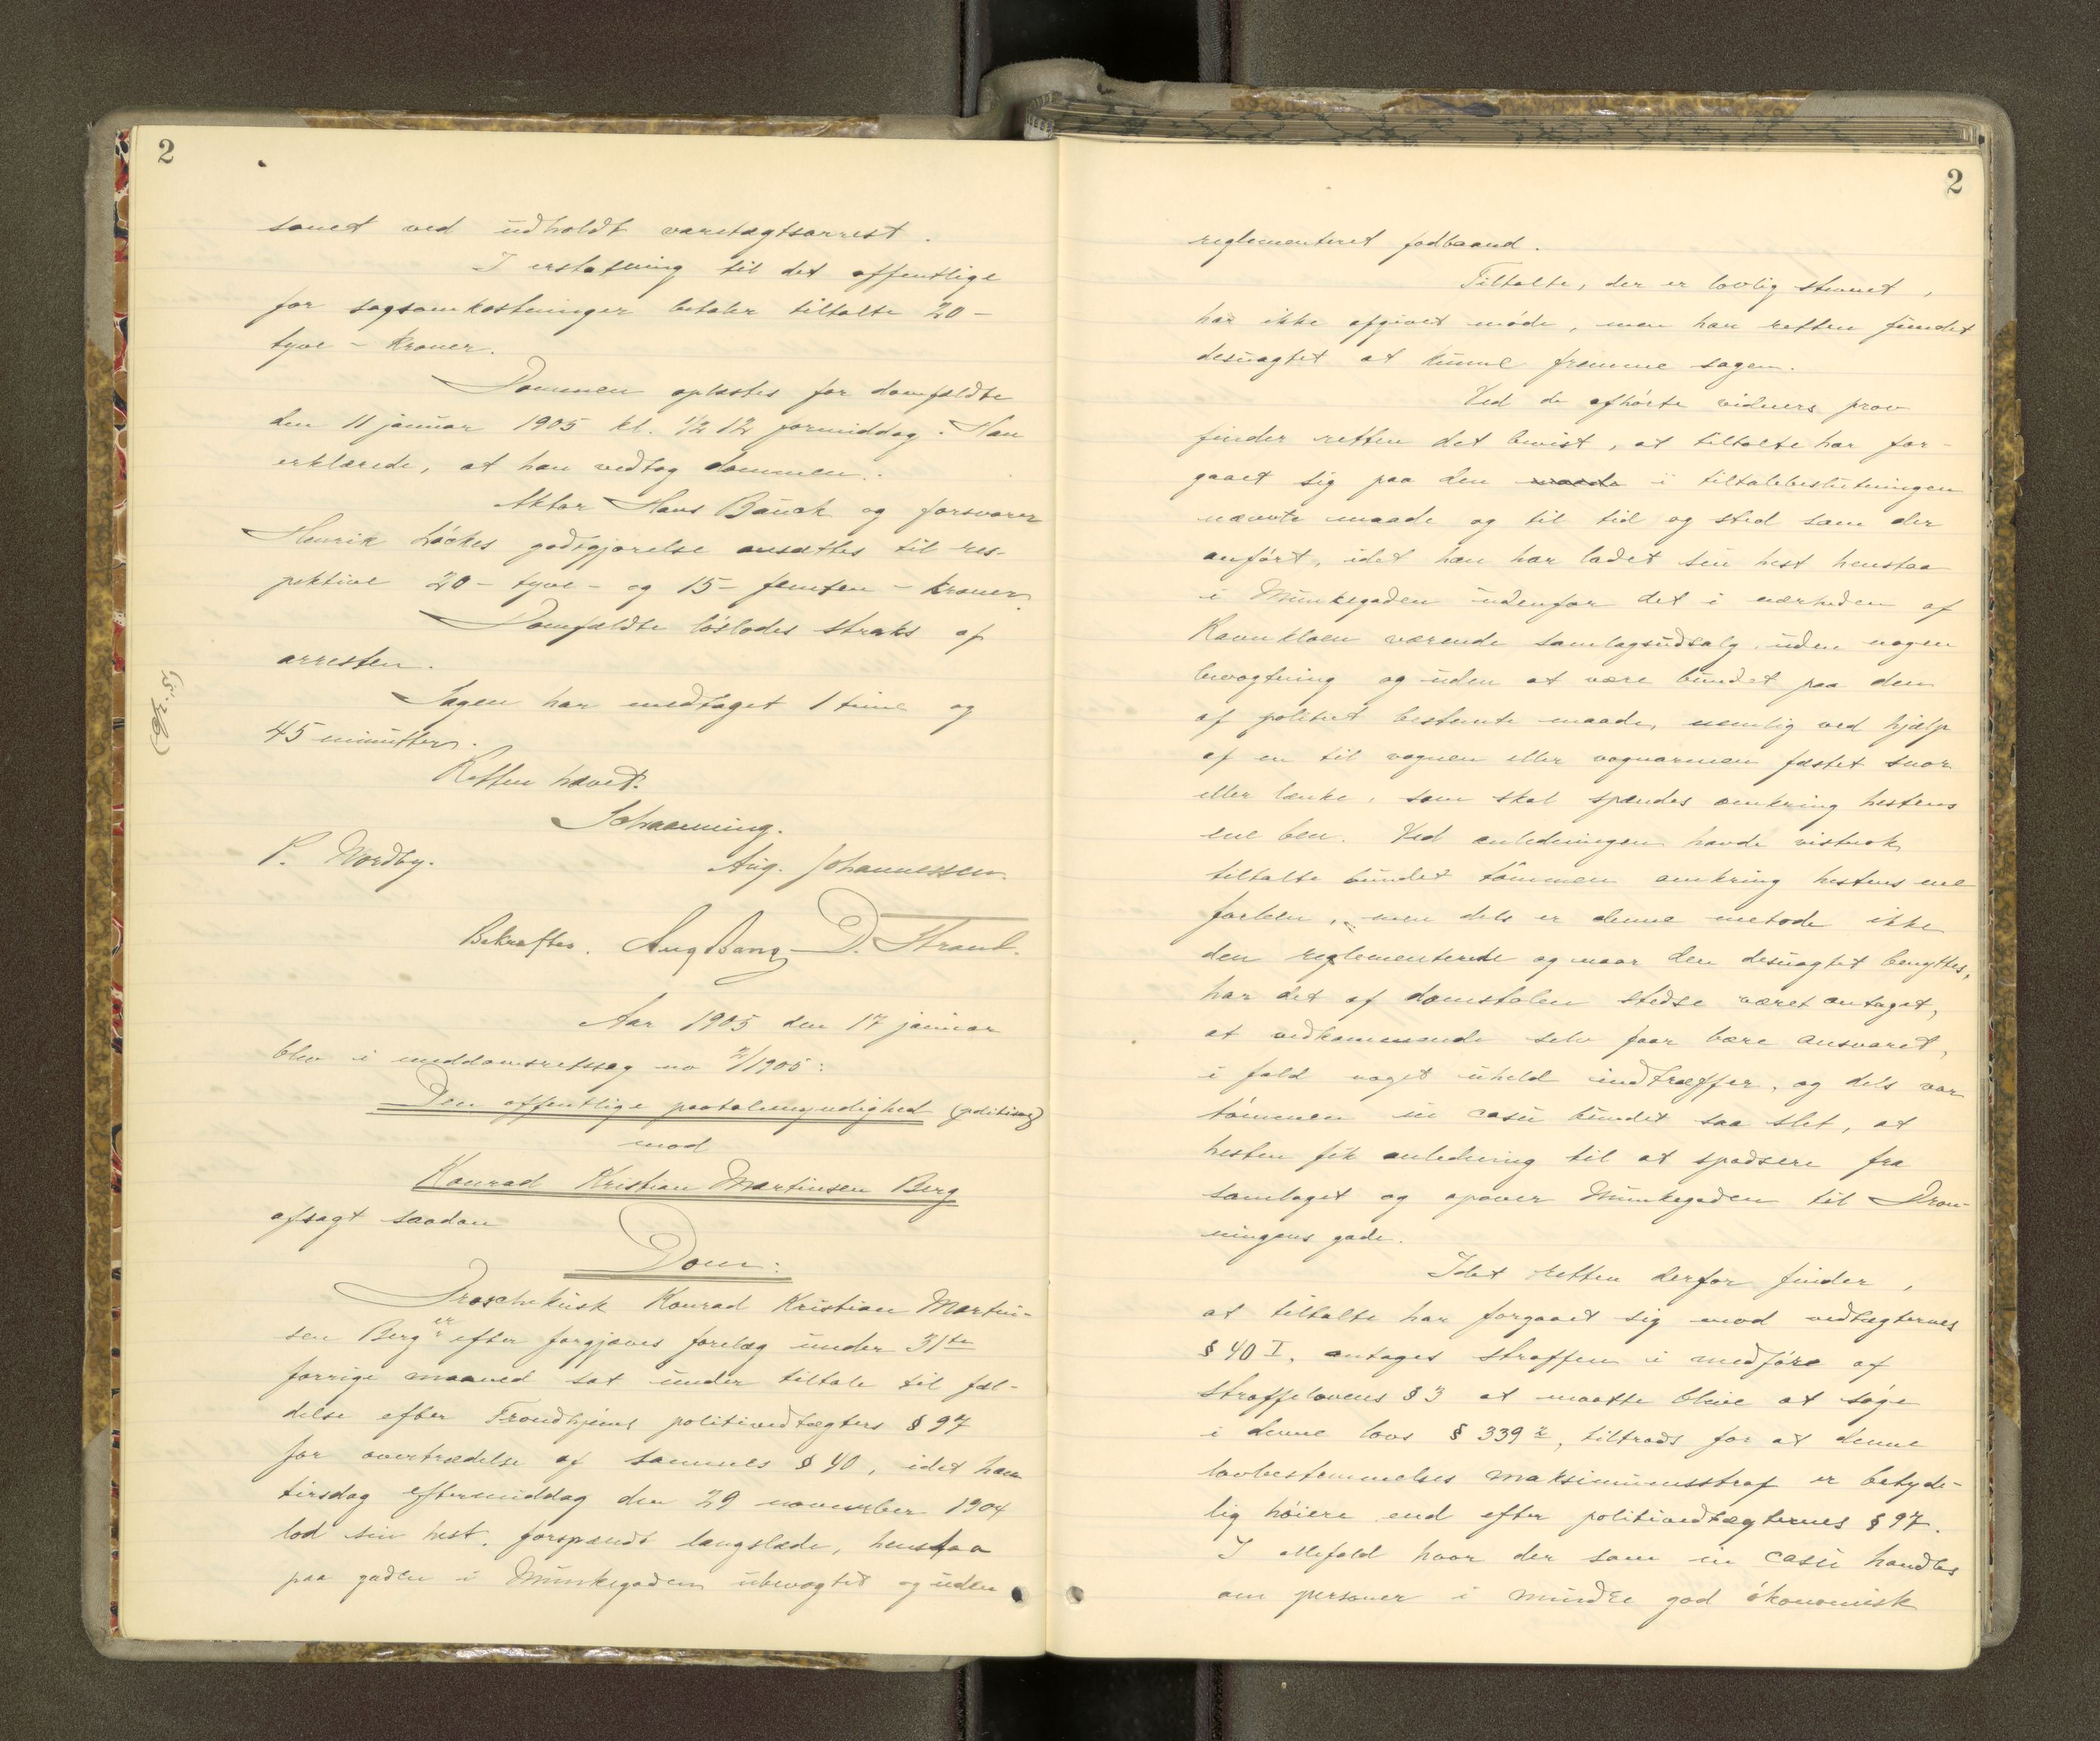 2
sonet ved udholdt varetægtsarrest.
I erstatning til det offentlige
for sagsomkostninger betaler tiltalte 20 -
tyve - kroner.
Dommen oplæstes for domfældte
den 11 januar 1905 kl. 1/2 12 formiddag. Han
erklærede, at han vedtog dommen.
Aktor Hans Bauck og forsvarer
Henrik Lóckes godtgjørelse ansættes til res-
pektive 20 - tyve - og 15 - femten - kroner.
Domfældte lóslades straks af
arresten.
Sagen har medtaget 1 time og
45 minutter.
Retten hævet.
Schaanning.
P. Nordby. Aug. Johannessen.
Bekræftes. Aug Bang D. Strand.
Aar 1905 den 17 januar
blev i meddomsretssag no 2/1905:
Den offentlige paatalemyndighed (politisag)
mod
Konrad Kristian Martinsen Berg
afsagt saadan
Dom:
Droschekusk Konrad Kristian Martin-
sen Berg er efter forgjæves forelæg under 31te
forrige maaned sat under tiltale til fæl-
delse efter Trondhjems politivedtægters § 97
for overtrædelse af sammes § 40, idet han
tirsdag eftermiddag den 29 november 1904
lod sin hest, forspændt langslæde, henstaa
paa gaden i Munkegaden ubevogtet og uden
2
reglementeret fodbaand.
Tiltalte, der er lovlig stevnet,
har ikke afgivet móde, men har retten fundet
desuagtet at kunne fremme sagen.
Ved de afhórte vidners prov
finder retten det bevist, at tiltalte har for-
gaaet sig paa den maade i tiltalebeslutningen
nævnte maade og til tid og sted som der
anfórt, idet han har ladet sin hest henstaa
i Munkegaden udenfor det i nærheden af
Ravnkloen værende samlagsudsalg uden nogen
bevogtning og uden at være bundet paa den
af politiet bestemte maade, nemlig ved hjælp
af en til vognen eller vognarmen fæstet snor
eller lænke, som skal spændes omkring hestens
ene ben. Ved anledningen havde vistnok
tiltalte bundet tómmen omkring hestens ene
forben, men dels er denne metode ikke
den reglementerede og naar den desuagtet benyttes,
har det af domstolen stedse været antaget,
at vedkommende selv faar bære ansvaret,
i fald noget uheld indtræffer, og dels var
tómmen in casu bundet saa slet, at
hesten fik anledning til at spadsere fra
samlaget og opover Munkegaden til Dron-
ningens gade.
Idet retten derfor finder,
at tiltalte har forgaaet sig mod vedtægternes
§ 40 I, antages straffen i medfóre af
straffelovens § 3 at maatte blive at sóge
i denne lovs § 339 2, tiltrods for at denne
lovbestemmelses maksimumsstraf er betyde-
lig hóiere end efter politivedtægternes § 97.
I allefald hvor der som in casu handles
om personer i mindre god ókonomisk